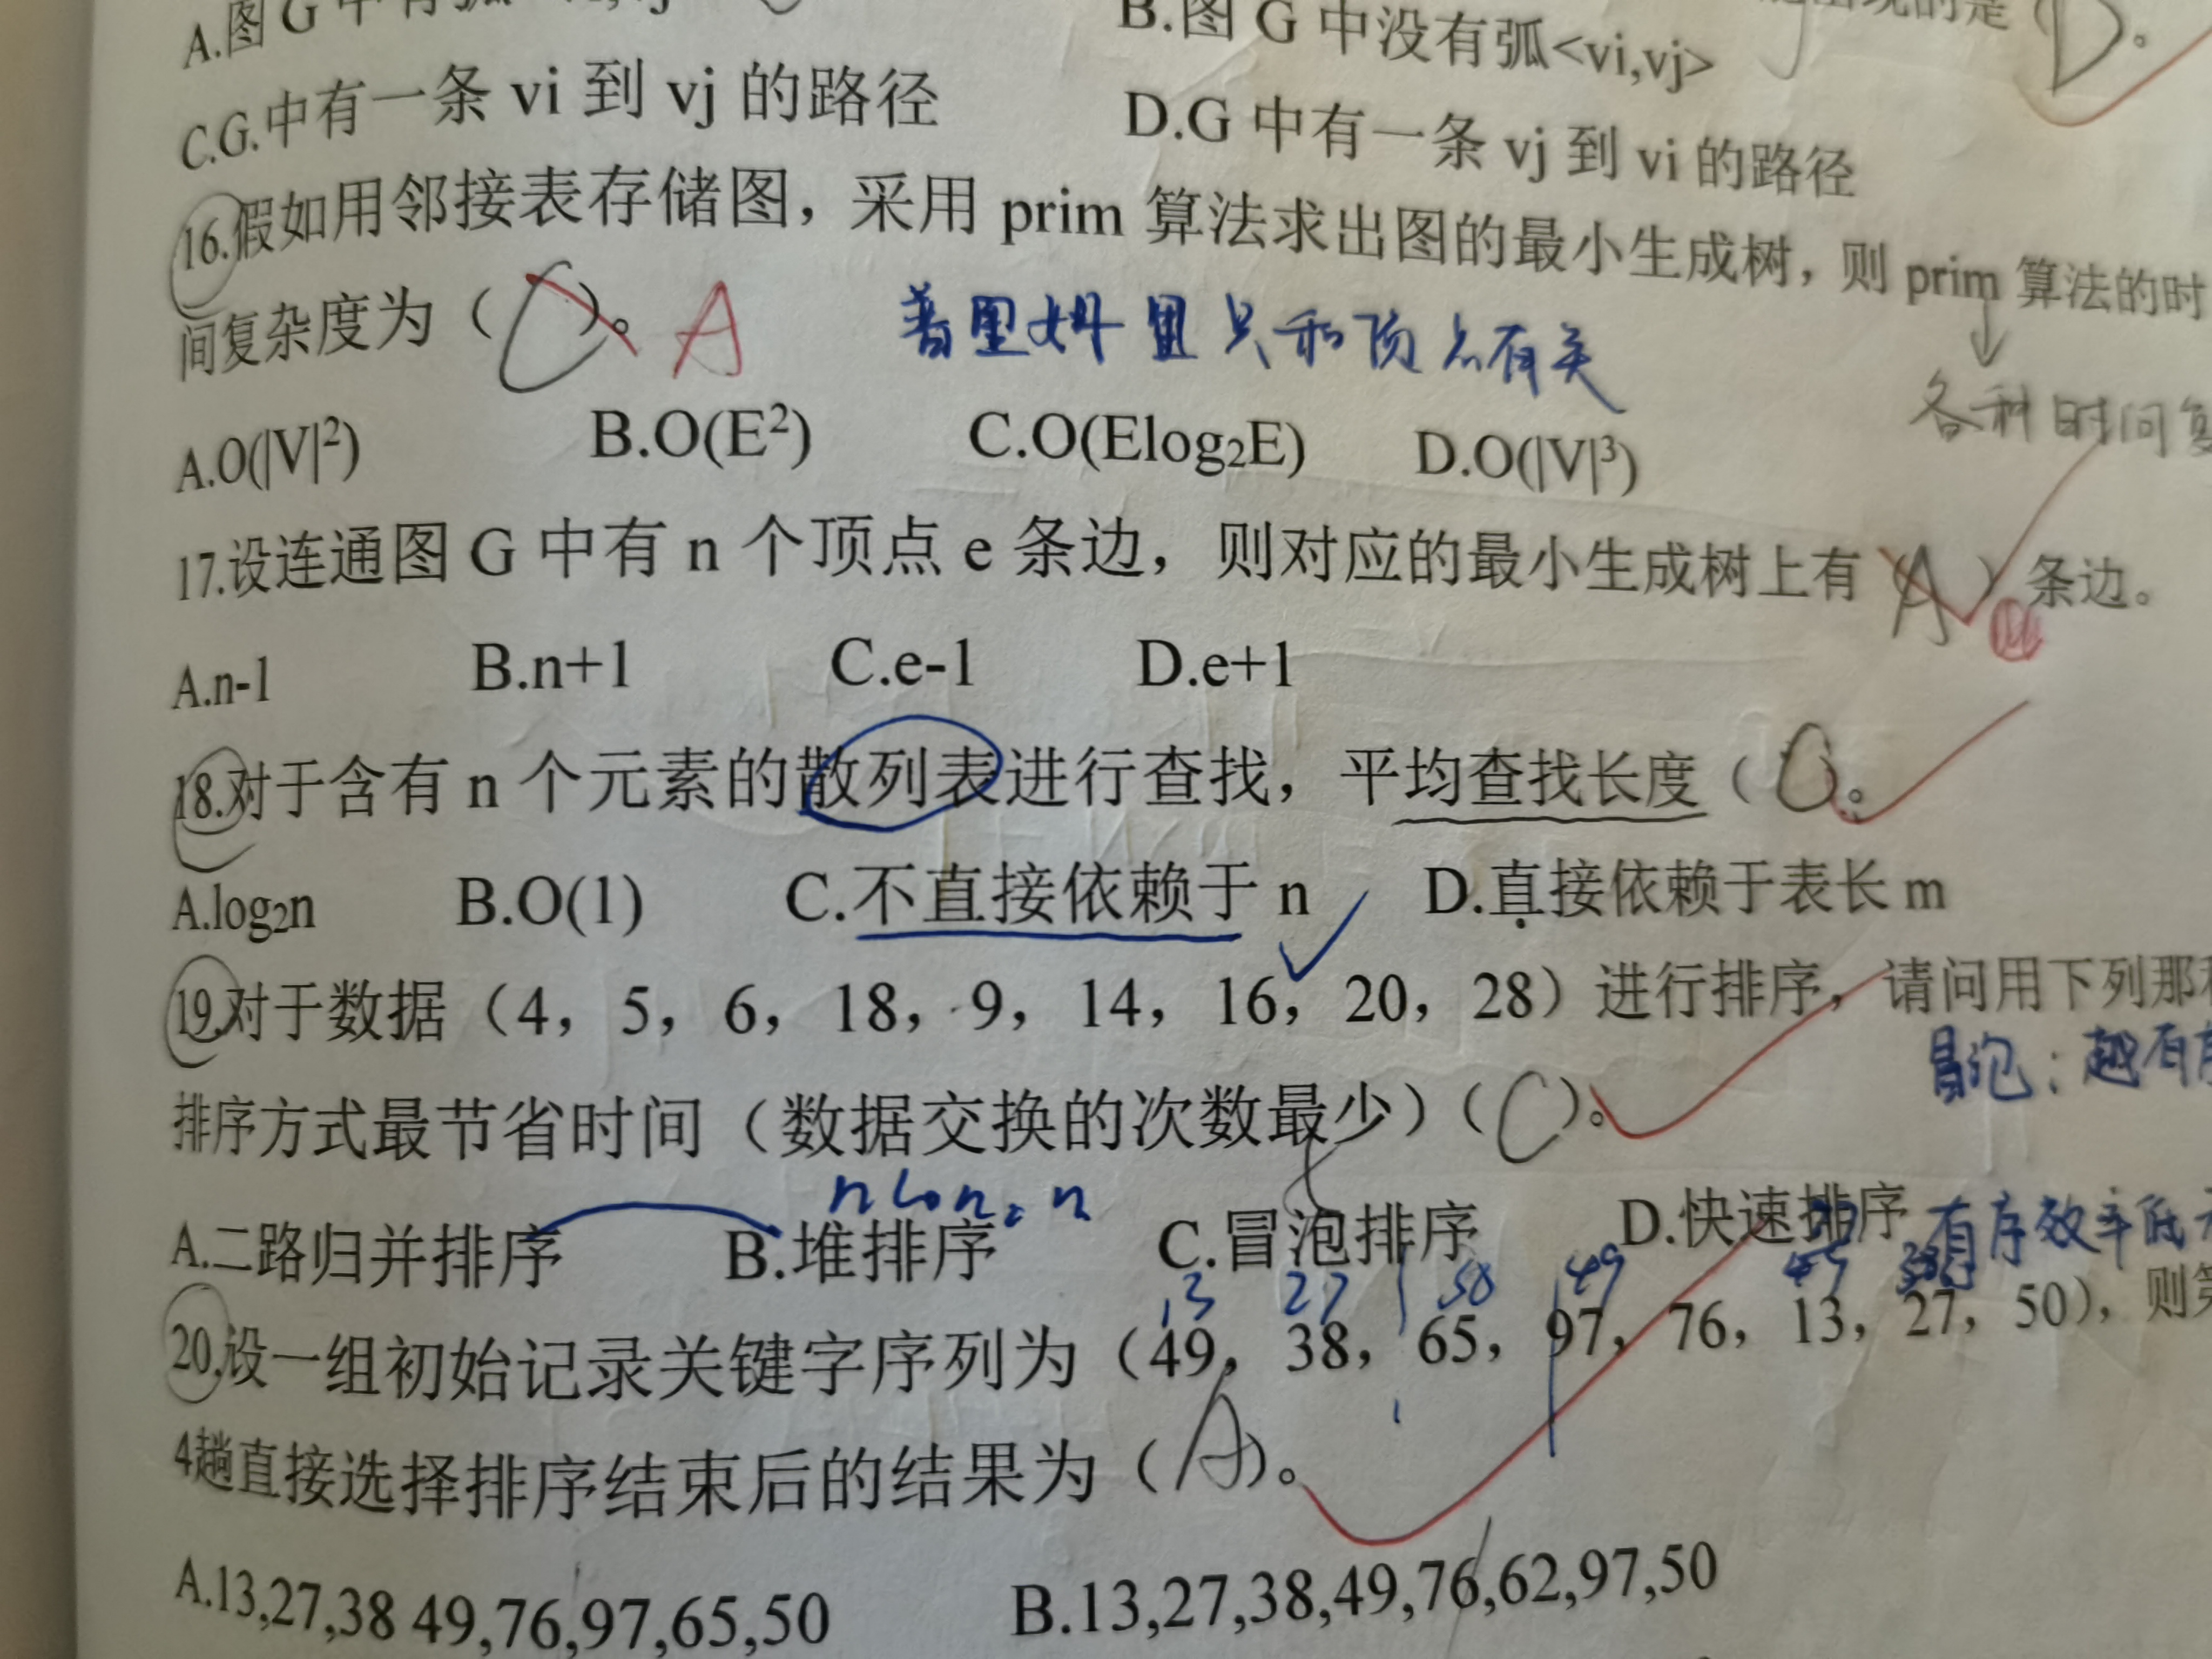 A.图 G 中有弧<vi,vj>
B.图 G 中没有弧<vi,vj>
的是 D 。
C.G.中有一条 vi 到 vj 的路径
D.G 中有一条 vj 到 vi 的路径
16.假如用邻接表存储图，采用 prim 算法求出图的最小生成树，则 prim 算法的时
间复杂度为（C）。 A
普里姆里只和顶点有关
各种时间复
A.O(|V|²) B.O(E²) C.O(Elog₂E) D.O(|V|³)
17.设连通图 G 中有 n 个顶点 e 条边，则对应的最小生成树上有（A）条边。
A.n-1 B.n+1 C.e-1 D.e+1
18.对于含有 n 个元素的散列表进行查找，平均查找长度（C）。
A.log₂n B.O(1) C.不直接依赖于 n D.直接依赖于表长 m
19.对于数据（4，5，6，18，9，14，16，20，28）进行排序，请问用下列那
冒泡：越有
排序方式最节省时间（数据交换的次数最少）（C）。
A.二路归并排序 B.堆排序 C.冒泡排序 D.快速排序
有序效率低
13 27 50 49
20.设一组初始记录关键字序列为（49，38，65，97，76，13，27，50），则第
4趟直接选择排序结束后的结果为（A）。
A.13,27,38 49,76,97,65,50 B.13,27,38,49,76,62,97,50